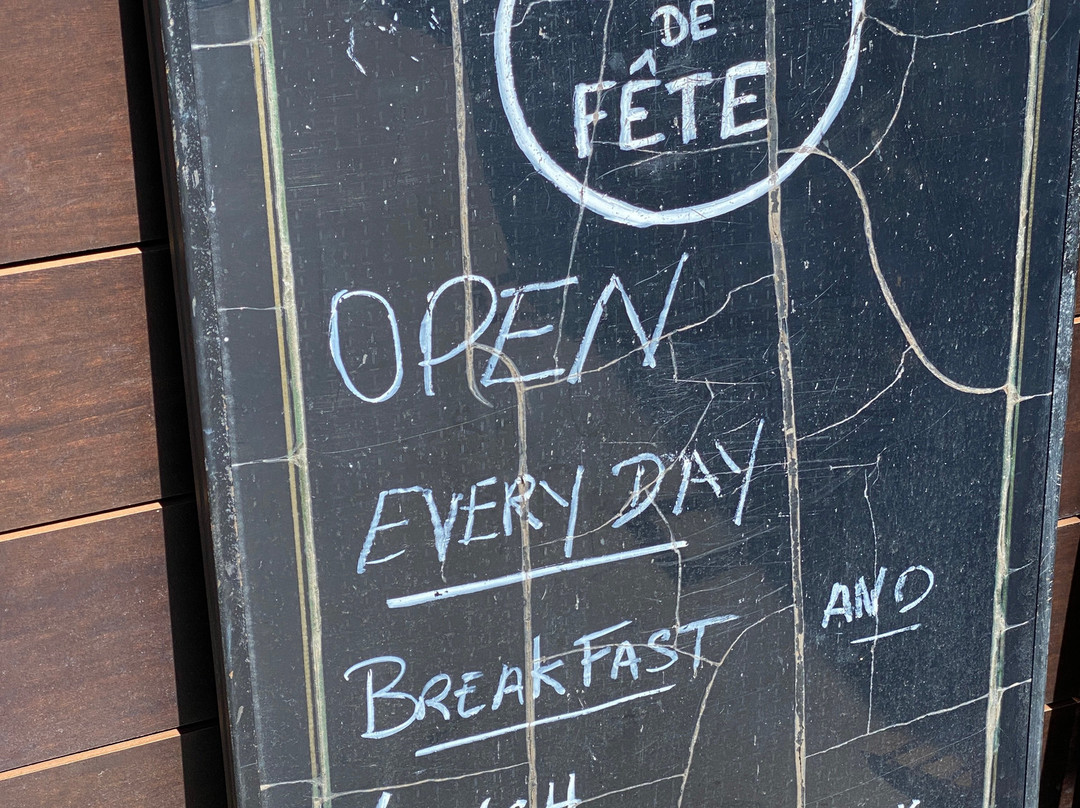 DE
FÊTE
OPEN
EVERY DAY
BREAKFAST AND